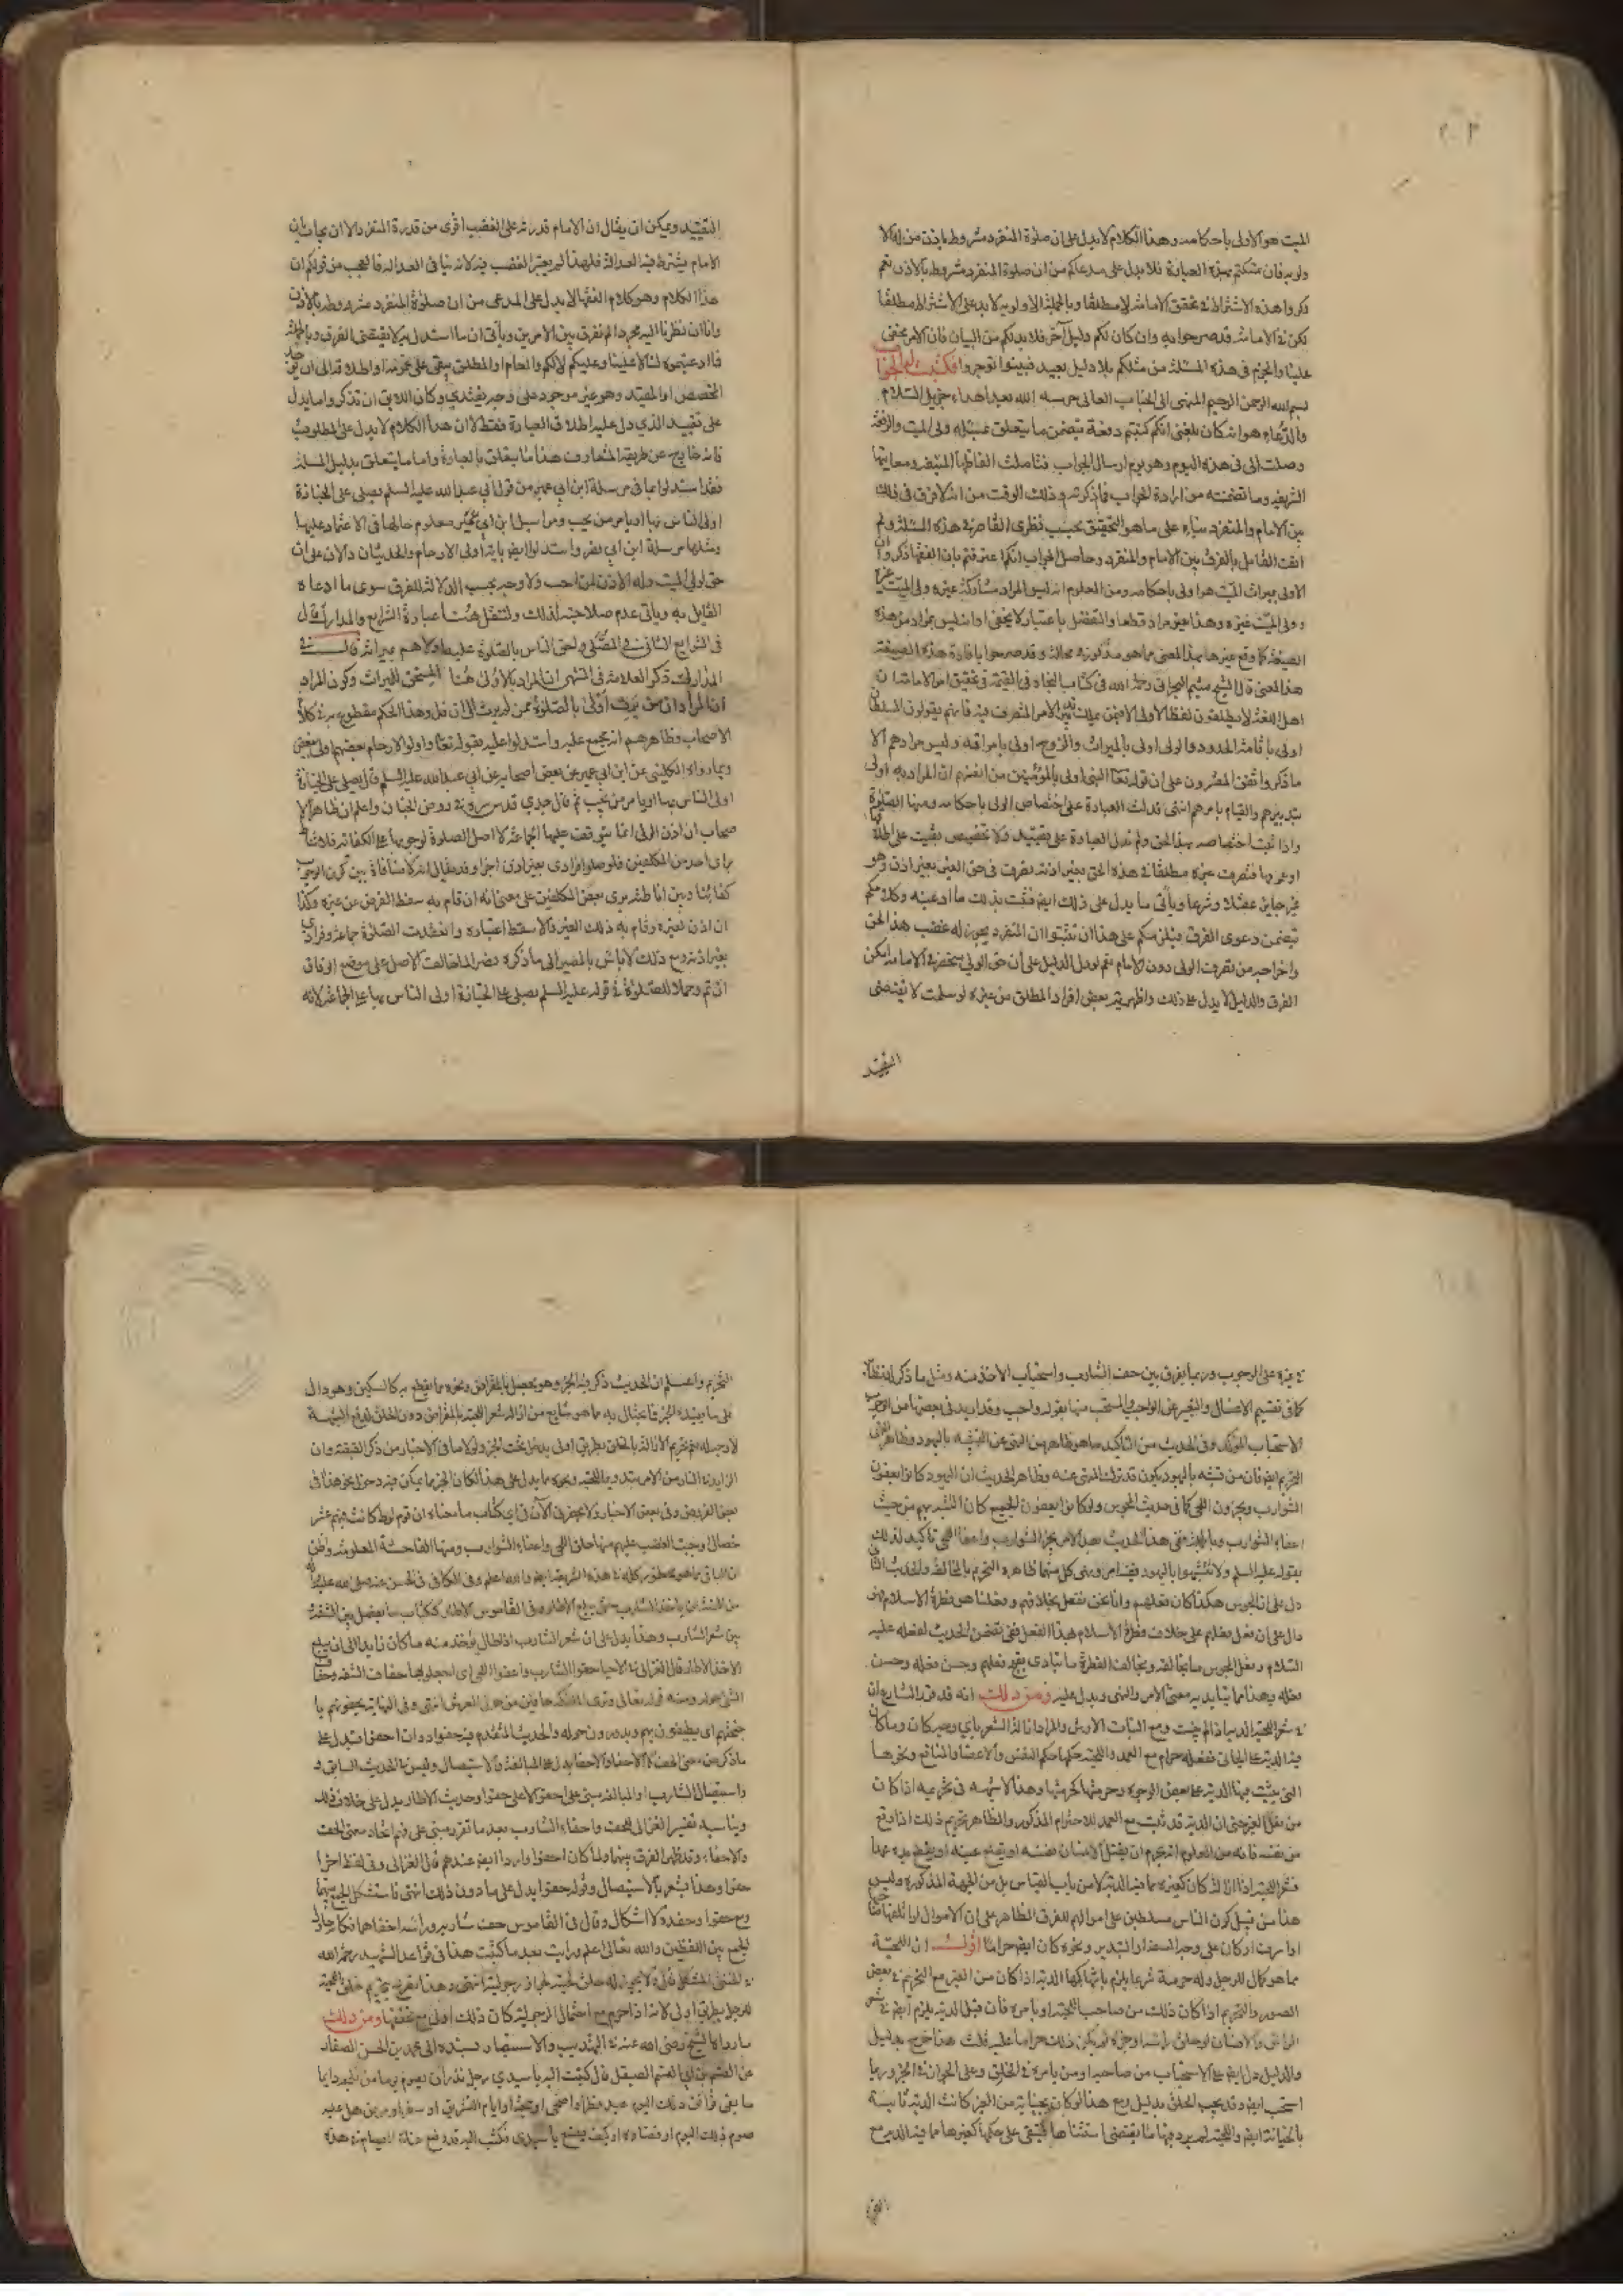 الميت هو الاولى باحكامه وهذا الكلام لا يدل على ان صلوة المنفرد مشروطة باذن من له الا
ولوية فان تمسكتم بهذه العبارة فلا يدل على مدعاكم من ان صلوة المنفرد مشروط بالاذن نعم
ذكروا هذه الاشتراط في تحقق الامامة لا مطلقا وبالجملة الاولوية لا يدل على الاشتراط مطلقا
لكن في الامامة قد صرحوا به وان كان لكم دليل آخر فلا بد لكم من البيان فان الامر مخفى
علينا والجزم في هذه المسئلة من مثلكم بلا دليل بعيد فبينوا توجروا فكتبت اليه الجواب
بسم الله الرحمن الرحيم المنهى الى الجناب العالى حرسه الله بعد اهداء جزيل السلام
والدعاء هو انه كان بلغنى انكم كتبتم رقعة يتضمن ما يتعلق بمسئلة ولى الميت والرقعة
وصلت الى في هذه اليوم وهو يوم ارسال الجواب فتاملت الفاظها المنيفة ومعاينها
الشريفة وما تضمنته من ارادة الجواب فاذكر في ذلك الوقت من انه لا فرق في ذلك
بين الامام والمنفرد بناء على ما هو التحقيق بحسب نظرى القاصر في هذه المسئلة ولم
اقف القائل بالفرق بين الامام والمنفرد وحاصل الجواب انكم اعترفتم بان الفقهاء ذكروا ان
الاولى بميراث الميت هو اولى باحكامه ومن المعلوم انه ليس المراد مشاركة غيره ولى الميت
وولى الميت غيره وهذا غير مراد قطعا والتفضل باعتبار لا يخفى اذ ليس المراد من هذه
الصيغة كما وقع غيرها بهذا المعنى مما هو مذكور في محاله وقد صرحوا بافادة هذه الصيغة
هذا المعنى قال الشيخ ميثم البحرانى رحمه الله في كتاب النجاة في القيمة في تحقيق امر الامامة ان
اهل اللغة لا يطلقون لفظ الاولى الا فيمن يملك تدبير الامر المتصرف فيه فانهم يقولون السلطان
اولى باقامة الحدود والولى اولى بالميراث والزوج اولى بامراته وليس مرادهم الا
ما ذكر واتفق المفسرون على ان قوله تعا النبى اولى بالمؤمنين من انفسهم ان المراد به اولى
بتدبيرهم والقيام بامرهم انتهى فدلت العبادة على اختصاص الولى باحكامه ومنها الصلوة
واذا ثبت اختصاصه بهذا الحق ولم تدل العبادة على تقييد ولا تخصيص بقيت على اطلاقها
او عمومها فتصرف غيره مطلقا في هذه الحق بغير اذنه تصرف في حق الغير بغير اذنه وهو
غير جايز عقلا وشرعا ويأتى ما يدل على ذلك ايضا فثبت بذلك ما ادعيته وكلامكم
تيضمن دعوى الفرق فيلزمكم على هذا ان تثبتوا ان المنفرد يجوز له غصب هذا الحق
واخراجه من تصرف الولى دون الامام نعم لو دل الدليل على ان حق الولى ينحصر في الامامة امكن
الفرق والدليل لا يدل على ذلك واظهرية بعض افراد المطلق من غيره لو سلمت لا تقتضى
التقييد
التقييد ويمكن ان يقال ان الامام قدرته على الغضب اقوى من قدرة المنفرد الا ان يجاب بان
الامام يشترط فيه العدالة فلهذا لم يعتبر الغضب فيه لانه ينافى العدالة فالعجب من قولكم ان
هذا الكلام وهو كلام الفقهاء لا يدل على المدعى من ان صلوة المنفرد مشروطة بالاذن
وانا ان نظرنا اليه مجردا لم نفرق بين الامرين ويأتى ان ما استدل به لا يقتضى الفرق وبالجملة
فما ادعيتموه لنا لا علينا وعليكم لا لكم والعام او المطلق يبقى على عمومه او اطلاقه الى ان يوجد
المخصص او المقيد وهو غير موجود على وجه يعتد به وكان اللايق ان تذكروا ما يدل
على تقييد الذي دل عليه اطلاق العبارة فقط لا ان هذا الكلام لا يدل على المطلوب
فانه خارج عن طريقة المتعارف هذا ما يتعلق بالعبارة واما ما يتعلق بدليل المسئلة
فقد استدلوا بما في مرسلة ابن ابي عمير من قول ابي عبد الله عليه السلم يصلى على الجنازة
اولى الناس بها او يامر من يحب ومراسيل ابن ابي عمير معلوم حالها في الاعتماد عليها
ومثلها مرسلة ابن ابي نصر واستدلوا ايضا باية اولى الارحام والحديثان دالان على ان
حق اولى الميت وله الاذن لمن احب ولا وجه بحسب الدلالة للفرق سوى ما ادعاه
القايل به ويأتى عدم صلاحيته لذلك ولننقل هنا عبارة الشرايع والمدارك قال
فى الشرايع الثانى في المصلى واحق الناس بالصلوة عليه اولاهم بميراثه قال في
المدارك ذكر العلامة في المنتهى ان المراد بالاولى هنا المستحق للميراث وكون المراد
ان المراد ان من يرث اولى بالصلوة ممن لم يرث الى ان قال وهذا الحكم مقطوع به في كلام
الاصحاب وظاهرهم انه مجمع عليه واستدلوا عليه بقوله تعا واولو الارحام بعضهم اولى ببعض
وبما رواه الكلينى عن ابن ابي عمير عن بعض اصحابه عن ابي عبد الله عليه السلم قال يصلى على الجنازة
اولى الناس بها او يامر من يحب ثم قال جدي قدس سره في روض الجنان واعلم ان ظاهر الا
صحاب ان اذن الولى انما يتوقف عليها الجماعة لا اصل الصلوة لوجوبها على الكفاية فلا تناط
براى احد من المكلفين فلو صلوا فرادى بغير اذن اجزا وقد يقال انه لا منافاة بين كون الوجوب
كفائيا وبين اناطته براى بعض المكلفين على معنى انه ان قام به سقط الفرض عن غيره وكذا
ان اذن لغيره وقام به ذلك الغير والا سقط اعتباره وانعقدت الصلوة جماعة وفرادى
بغير اذنه ومع ذلك لا باس بالمصير الى ما ذكره قصرا لما خالف الاصل على موضع الوفاق
ان تم وحملا للصلوة في قوله عليه السلم يصلى على الجنازة اولى الناس بها على الجماعة لانه
غيره على الوجوب وربما يفرق بين حف الشارب واستحباب الاخذ منه ومثل ما ذكر
كما في تقسيم الافعال والتعبير عن الواجب والمستحب منها بقوله واجب وقد ايد فى بعضها من الوجوب
الاستحباب المؤكد وفى الحديث من التاكيد ما هو ظاهر من النهى عن التشبه باليهود وظاهر النهى
التحريم ايضا فان من تشبه باليهود يكون قد ترك المنهى عنه وظاهر الحديث ان اليهود كانوا يعفون
الشوارب ويجزون اللحى كما فى حديث المجوس ولو كانوا يعفون الجميع كان التشبه بهم من حيث
اعفاء الشوارب وبالجملة ففى هذا الحديث بعد الامر بجز الشوارب واعفاء اللحى تاكيد لذلك
بقوله عليه السلم ولا تشبهوا باليهود ففيه امر ونهى كل منهما ظاهره التحريم بالمخالفة والحديث الثانى
دل على ان المجوس هكذا كان فعلهم وانا نحن نفعل بخلافهم وفعلنا هو فطرة الاسلام
دال على ان فعل فعلهم على خلاف فطرة الاسلام هذا الفعل ففى تضمن الحديث لفعله عليه
السلام وفعل المجوس ما يخالفه ومخالف الفطرة ما ينادى بقبح فعلهم وحسن فعله وحسن
فعله وهذا مما يتايد به معنى الامر والنهى ويدل عليه ومن ذلك انه قد قرر الشارع ان
في شعر اللحية الدية اذا لم ينبت ومع النبات الارش والمراد ازالة الشعر باي وجه كان وما كان
فيه الدية على الجانى ففعله حرام مع العمد واللحية حكمها حكم النفس والاعضاء والمنافع ونحوها
التى يثبت فيها الدية على بعض الوجوه وحرمتها كحرمتها وهذا لا شبهه فى تحريمه اذا كان
من فعل الغير حتى ان الدية قد ثبتت مع العمد للاحترام المذكور والظاهر تحريم ذلك اذا وقع
من نفسه فانه من المعلوم انه يحرم ان يقتل الانسان نفسه او يقلع عينه او يقطع يده عمدا
فشعر اللحية اذا ازاله كان كغيره مما فيه الدية لا من باب القياس بل من الجهة المذكورة وليس
هذا من قبيل كون الناس مسلطين على اموالهم للفرق الظاهر على ان الاموال لو اتلفها صاحبها
او اسرف او كان على وجه السفه او التبذير ونحوه كان ايضا حراما اقول ان اللحية
مما هو كمال للرجل وله حرمة شرعا يلزم بانتهاكها الدية اذا كان من الغير مع التحريم في بعض
الصور والتحريم اذا كان ذلك من صاحب اللحية او بامره فان قيل الدية يلزم ايضا في شعر
الراس والانسان لو حلق راسه او جزه لم يكن ذلك حراما عليه قلت هذا خرج بدليل
والدليل دل ايضا على الاستحباب من صاحبه او من يامره في الحلق وعلى الجواز في الجز وربما
استحب ايضا وقد يجب الحلق بدليل ومع هذا لو كان بجناية من الغير كانت الدية ثابتة
بالجناية ايضا واللحية لم يرد فيها ما يقتضى استثناها فتبقى على حكمها كغيرها مما فيه الدية مع
التحريم واعلم ان الحديث ذكر فيه الجز وهو يحصل بالمقراض ونحوه مما يقطع به كالسكين وهو دال
على ما يفيده الجز فما يحتال به مما هو شايع من ازالة شعر اللحية بالمقراض دون الحلق لدفع الشبهة
لا وجه له نعم تحريم الازالة بالحلق بطريق اولى يدخل تحت الجز ولو لا ما فى الاخبار من ذكر القبضة وان
الزايد في النار من الامر بتدوير اللحية ونحوه مما يدل على هذا لكان الجز مما يمكن فيه دخول نحو هذا فى
بعض الفروض وفى بعض الاخبار ولا يحضرنى الآن فى اي كتاب ما معناه ان قوم لوط كانت فيهم عشر
خصال اوجبت الغضب عليهم منها حلق اللحى واعفاء الشوارب ومنها الفاحشة المعلومة وظن
ان الباقى مما هو محظور كله في هذه الشريعة ايضا والله اعلم وفى الكافى
من السنة ان ياخذ الشارب حتى يبلغ الاطار وفى القاموس الاطار ككتاب ما يفصل بين الشفة
بين شعر الشارب وهذا يدل على ان شعر الشارب اذا طال يؤخذ منه ما كان زايدا الى ان يبلغ
الاخذ الاطار قال الغزالى في الاحياء حفوا الشارب واعفوا اللحى اى اجعلوها حفاف الشفة وحفاف
الشئ حوله ومنه قوله تعالى وترى الملائكة حافين من حول العرش انتهى وفى النهاية يحفونهم با
جنحتهم اى يطيفون بهم ويدورون حولهم والحديث المتقدم فيه حفوا وان احفوا فيدل على
ماذكر من معنى الحف لا الاحفاء والاحفاء يدل على المبالغة والاستيصال وليس في الحديث السابق
واستيصال الشارب او المبالغة مبنى على احفوا لا على حفوا وحديث الاطار يدل على خلاف ذلك
ويناسبه تفسير الغزالى للحف واحفاء الشارب بعد ما تقرر مبنى على فهم اتحاد معنى الحف
والاحفاء وقد ظهر الفرق بينهما ولما كان احفوا واردا ايضا عندهم قال الغزالى وفى لفظ اخر ا
حفوا وهذا يشعر بالاستيصال وقوله حفوا يدل على ما دون ذلك انتهى فاستشكل الجمع بينهما
ومع حفوا وحفه لا اشكال وقال فى القاموس حف شاربه وراسه احفاهما فكانه حاول
الجمع بين اللفظين والله تعالى اعلم ورايت بعد ما كتبت هذا فى قواعد الشهيد رحمه الله
في الخنثى المشكل قال لا يجوز له حلق لحيته لجواز رجوليته انتهى وهذا يقرب تحريم حلق اللحية
للرجل بطريق اولى لانه اذا حرم مع احتمال الرجولية كان ذلك اولى مع تحققها ومن ذلك
ما رواه الشيخ رضى الله عنه في التهذيب والاستبصار بسنده الى محمد بن الحسن الصفار
عن القسم بن ابى القسم الصيقل قال كتبت اليه يا سيدي رجل نذر ان يصوم يوما من الجمعة دايما
ما بقى فوافق ذلك اليوم عيد فطر او اضحى او جمعة او ايام التشريق او سفر او مرض هل عليه
صوم ذلك اليوم او قضاؤه او كيف يصنع يا سيدى فكتب اليه قد وضع عنك الصيام في هذه